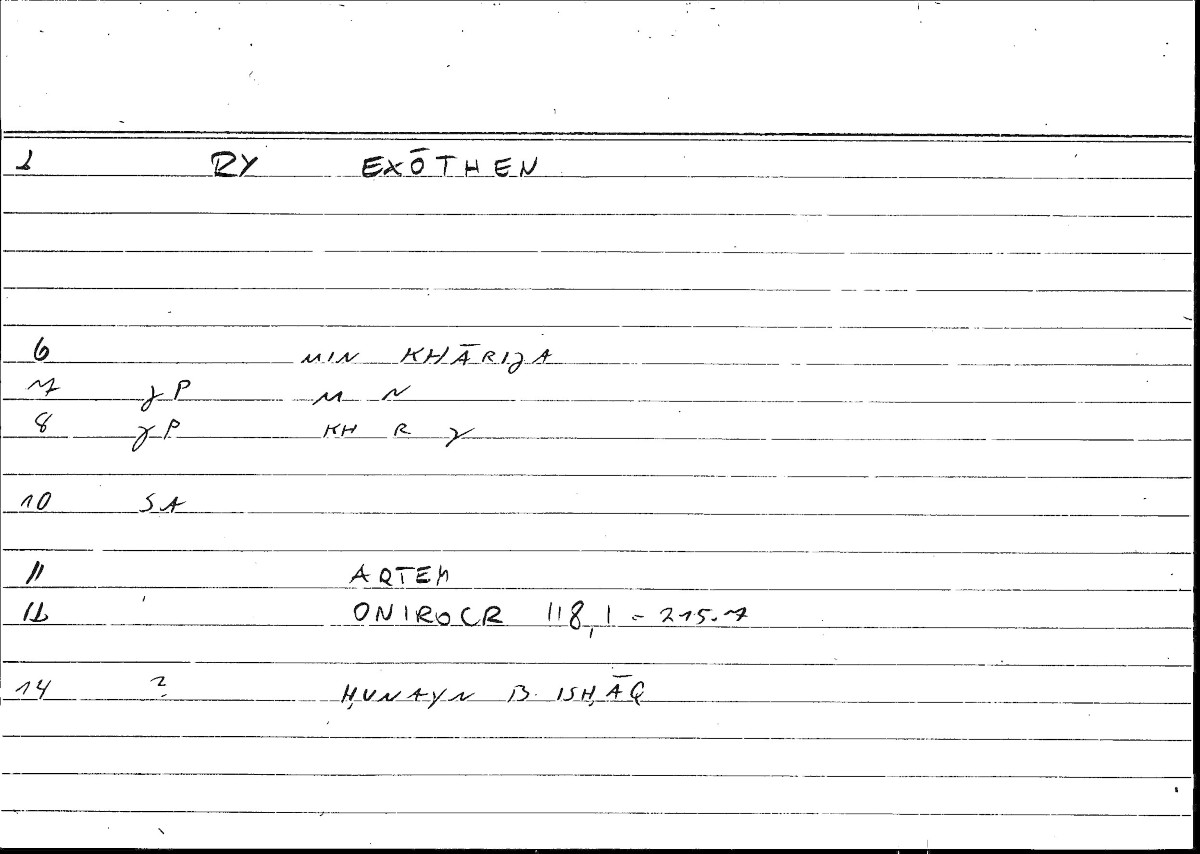 1 RY EXŌTHEN
6 MIN KHĀRIJA
7 JP M N
8 JP KH R J
10 SA
11 ARTEM
12 ONIROCR 118,1 - 215.7
14 ? ḤUNAYN B. ISḤĀQ